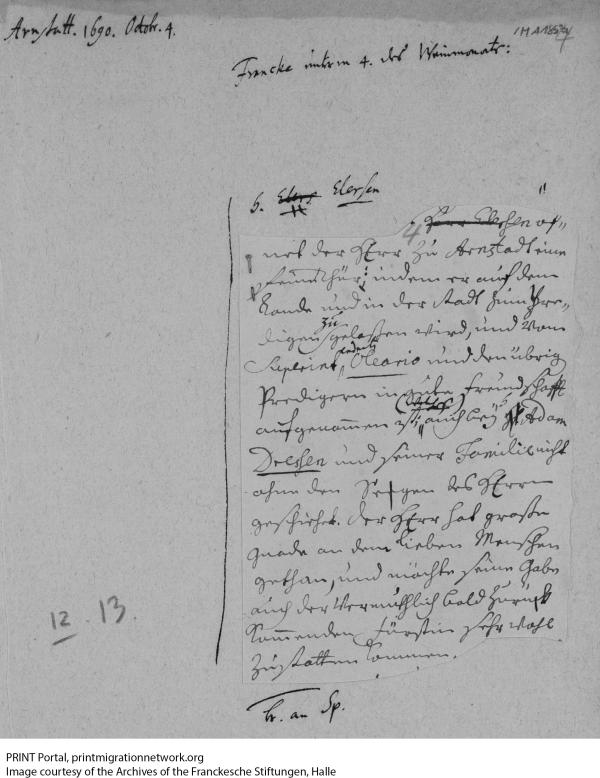 Arnstatt. 1690. Octobr. 4.
Francke unterm 4. des Weinmonats:
H. Elers Elersen
4 Herr Elersen öf-
net der HErr zu Arnstadt eine
feine thür, indem er auf dem
Lande und in der Stadt zum Pre-
digen zu gelassen wird, und vom
Superint. Oleario und den übrig
Predigern in gute freundschafft
aufgenommen ist; auch bey H. Adam
Dresen und seiner Familie nicht
ohne den Seegen des HErrn
geschiehet. Der HErr hat große
Gnade an dem lieben Menschen
gethan, und möchte seine Gabe
auch der vermuthlich bald zurück
kommenden Fürstin sehr wohl
zu statten kommen.
Fr. an Sp.
12 . 13
PRINT Portal, printmigrationnetwork.org
Image courtesy of the Archives of the Franckesche Stiftungen, Halle